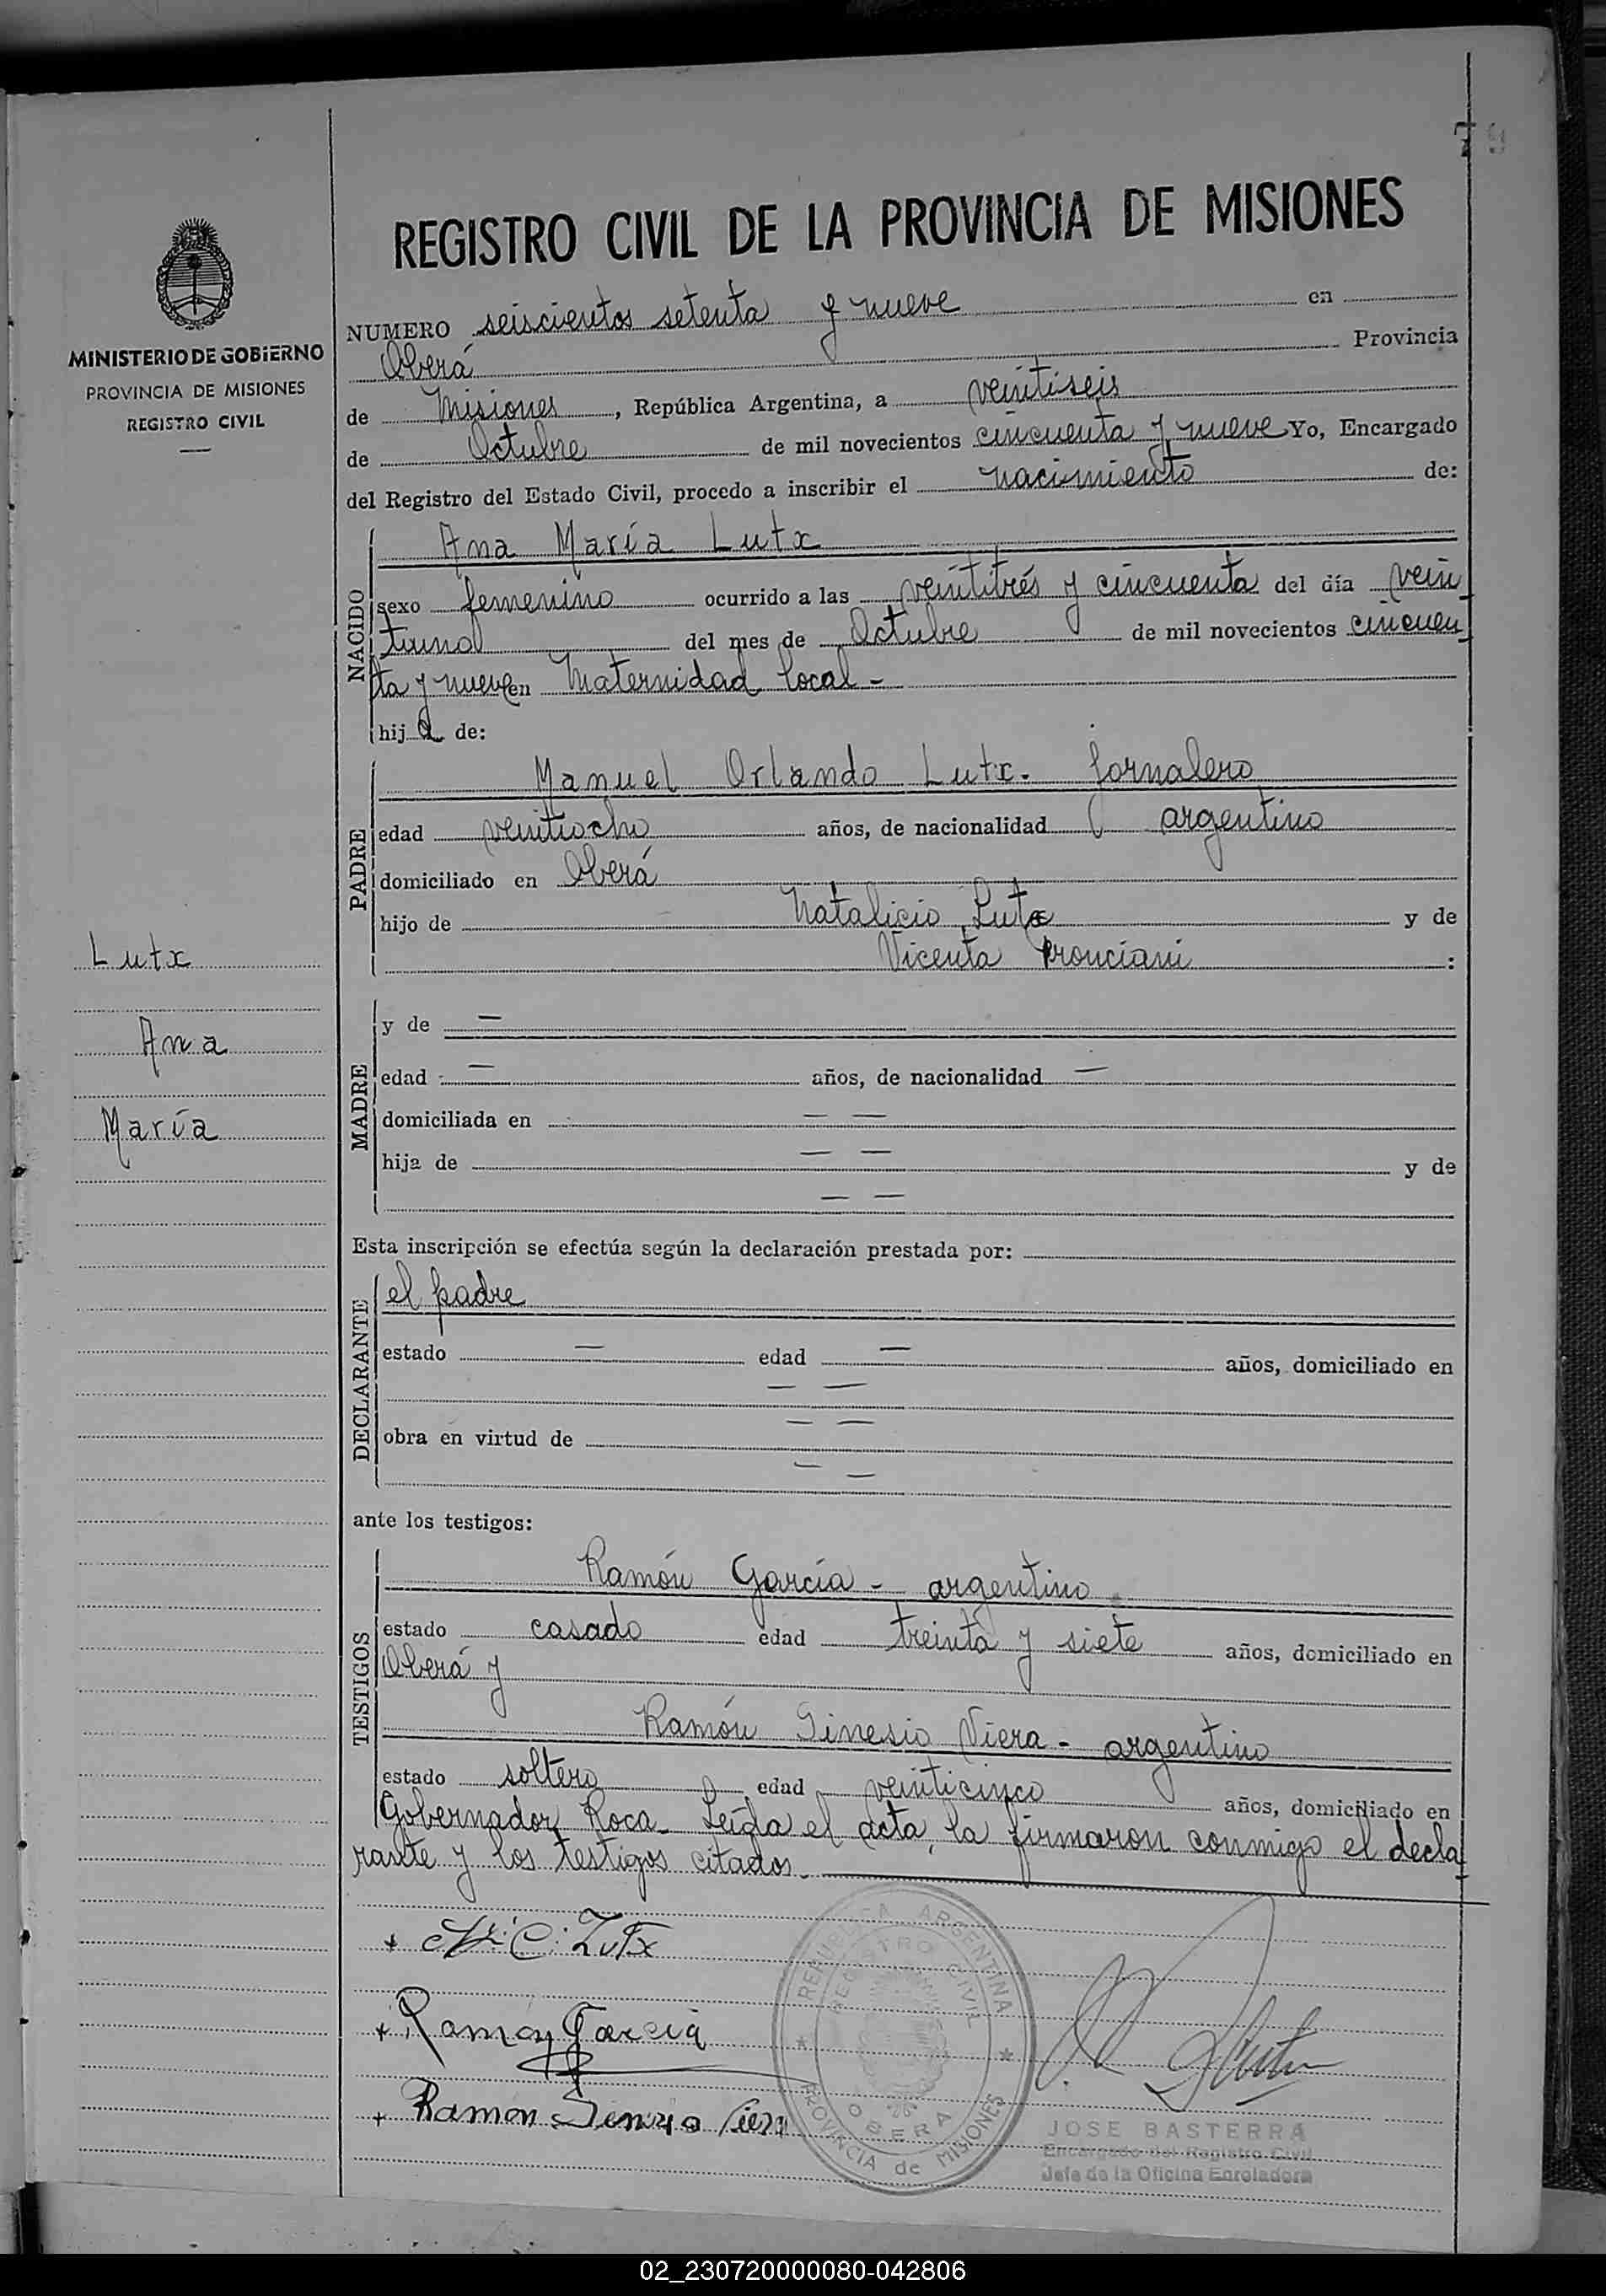 79
REGISTRO CIVIL DE LA PROVINCIA DE MISIONES
MINISTERIO DE GOBIERNO
PROVINCIA DE MISIONES
REGISTRO CIVIL
NUMERO seiscientos setenta y nueve en
Oberá Provincia
de Misiones, República Argentina, a veintiseis
de Octubre de mil novecientos cincuenta y nueve Yo, Encargado
del Registro del Estado Civil, procedo a inscribir el nacimiento de:
NACIDO
Ana María Lutx
sexo femenino ocurrido a las veintitrés y cincuenta del día vein
tiuno del mes de Octubre de mil novecientos cincuen
ta y nueve en Maternidad local -
hija de:
PADRE
Manuel Orlando Lutx. jornalero
edad veintiocho años, de nacionalidad argentino
domiciliado en Oberá
hijo de Natalicio Lutx y de
Vicenta :
Lutx
Ana
María
MADRE
y de —
edad — años, de nacionalidad —
domiciliada en — —
hija de — — y de
— —
Esta inscripción se efectúa según la declaración prestada por:
DECLARANTE
el padre
estado — edad — años, domiciliado en
— —
obra en virtud de — —
— —
ante los testigos:
TESTIGOS
Ramón García - argentino
estado casado edad treinta y siete años, domiciliado en
Oberá y
Ramón Sinesio Viera - argentino
estado soltero edad veinticinco años, domiciliado en
Gobernador Roca. Leída el acta, la firmaron conmigo el decla
rante y los testigos citados.
Lutx
Ramón Garcia
Ramon
REPUBLICA ARGENTINA
REGISTRO CIVIL
OBERA
PROVINCIA de MISIONES
JOSE BASTERRA
Encargado del Registro Civil
Jefe de la Oficina Enroladora
02_230720000080-042806